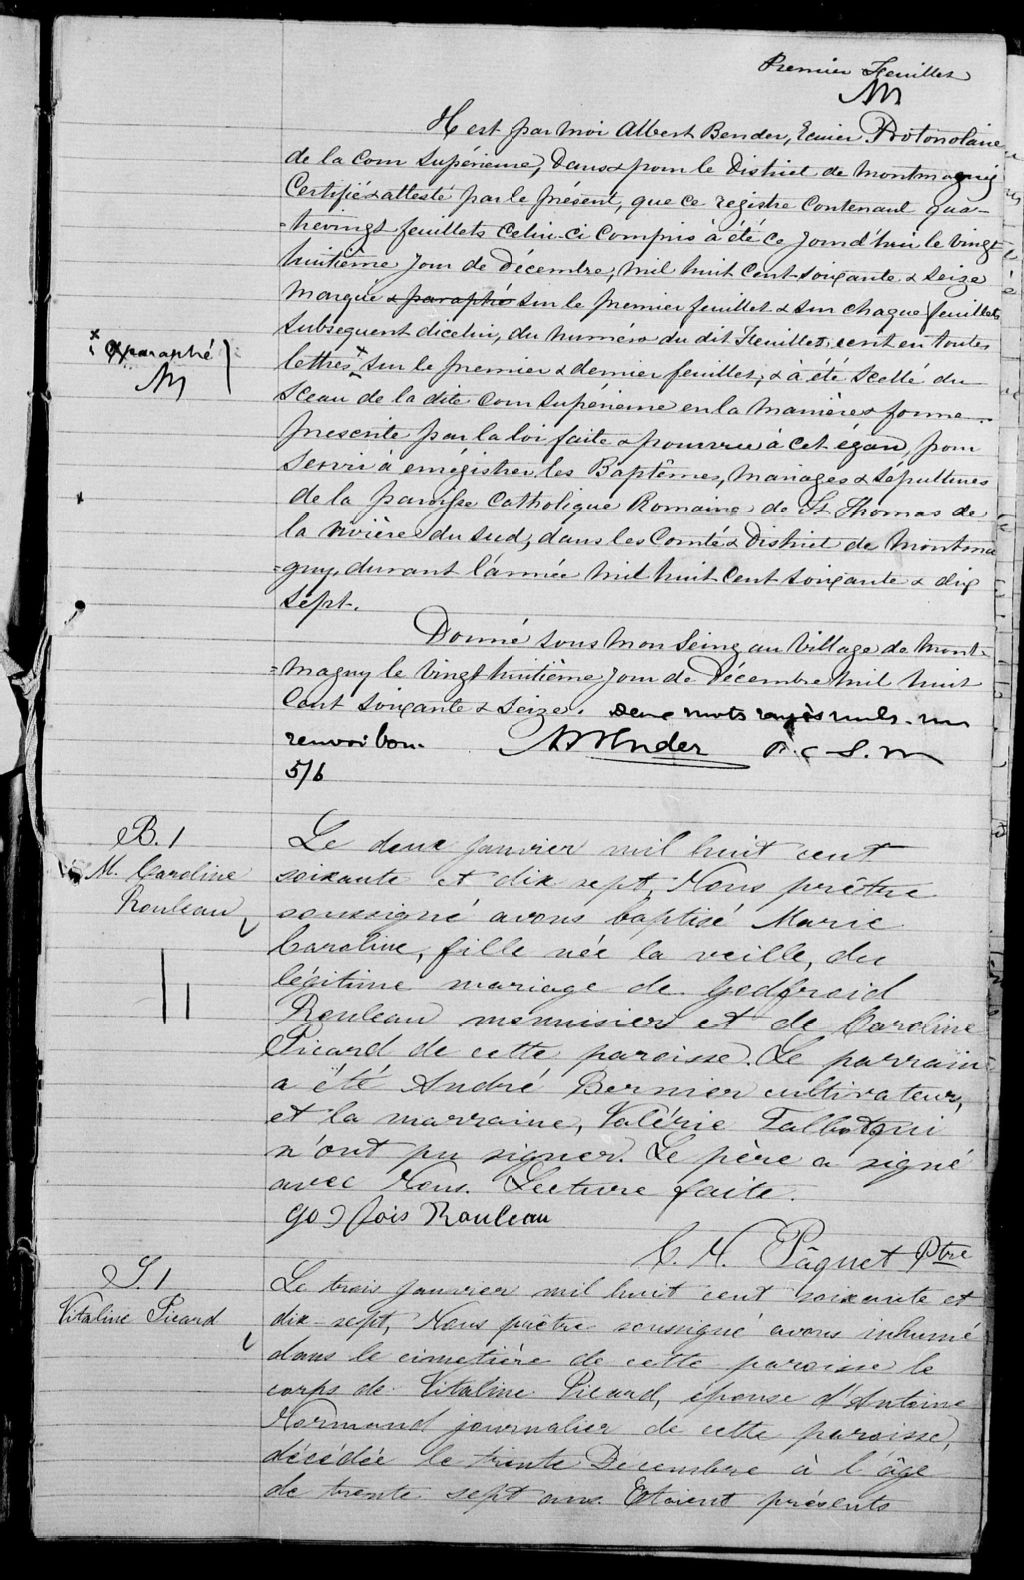 Premier Feuillet
Il est par moi Albert Bender, Ecuier Protonotaire
de la Cour Supérieure, dans & pour le District de Montmagny
Certifié & attesté par le présent, que ce registre Contenant qua-
=trevingt feuillets Celui-ci Compris à été ce jourd'hui le vingt
huitième jour de Décembre, mil huit Cent soixante & seize
Marqué & paraphé sur le premier feuillet & sur chaque feuillets
Subsequent d'icelui, du numéro du dit Feuillet, écrit en toutes
x & paraphé )
lettres x sur le premier & dernier feuillet, & à été Scellé du
Sceau de la dite Cour Supérieure en la manière & forme
prescrite par la loi faite & pourvue à cet égard, pour
servir à enrégistrer les Baptêmes, Mariages & Sépultures
de la paroisse Catholique Romaine de St Thomas de
la Rivière du Sud, dans les Comté & District de Montma
=gny, durant l'année Mil huit Cent soixante & dix
Sept.
Donné sous Mon Seing au Village de Mont-
=magny le vingt huitième jour de Décembre Mil huit
Cent Soixante & Seize. Deux mots rayés nuls. un
renvoi bon. A Bender P. C. S. M
5/6
B. 1
M. Caroline
Rouleau
Le deux janvier mil huit cent
soixante et dix sept, Nous prêtre
soussigné avons baptisé Marie
Caroline, fille née la veille, du
légitime mariage de Godfroid
Rouleau menuisier et de Caroline
Picard de cette paroisse. Le parrain
a été André Bernier cultivateur,
et la marraine, Valérie Talbot qui
n'ont pu signer. Le père a signé
avec Nous. Lecture faite.
Godfois Rouleau
C. N. Pâquet Ptre
S. 1
Vitaline Picard
Le trois janvier mil huit cent soixante et
dix-sept, Nous prêtre soussigné avons inhumé
dans le cimetière de cette paroisse le
corps de Vitaline Picard, épouse d'Antoine
Normand journalier de cette paroisse,
décédée le trente Décembre à l'âge
de trente sept ans. Etaient présents